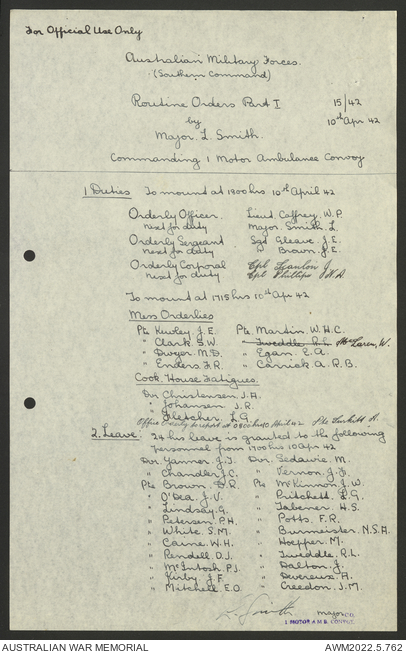 For Official Use Only
Australian Military Forces.
(Southern Command)
Routine Orders Part I 15/42
by 10th Apr 42
Major. L. Smith.
Commanding 1 Motor Ambulance Convoy
1 Duties To mount at 1900hrs 10th April 42
Orderly Officer. Lieut Caffrey. W.P.
next for duty Major. Smith. L.
Orderly Sergeant Sgt Gleave. J.E.
next for duty " Brown. J.E.
Orderly Corporal Cpl Scanlon J.
next for duty Cpl Phillips
To mount at 1715hrs 10th Apr 42
Mess Orderlies
Pte Kewley. J.E. Pte Martin. W.H.C.
" Clark. S.W. " Tweddle R.L. McLaren, W.
" Dwyer. M.D. " Egan. E.A.
" Enders. F.R. " Carrick A.R.B.
Cook House Fatigues.
Dvr Christensen. J.A.
" Johansen. J.R.
" Fletcher. L.G.
Office Orderly to report at 0800hrs 10 April 42 Pte A.
2. Leave: 24 hrs leave is granted to the following
personnel from 1700 hrs 10 Apr 42
Dvr Yanner. J.J. Dvr Sedawie. M.
" Chandler J.C. " Vernon. J.
Pte Brown. D.R. Pte McKinnon. J.W.
" O'Dea. J.V. " Pritchett. L.G.
" Lindsay. G. " Taberner. H.S.
" Petersen. P.H. " Potts. F.R.
" White. S.M. " Burmeister. N.S.A.
" Caine. W.H. " Hoepper. M.
" Rendell. O.J. " Tweddle. R.L.
" McIntosh P.J. " Dalton. J.
" Kirby. J.F. " Devereux. A.
" Mitchell. E.O. " Creedon. J.M.
L. Smith major CO.
1 MOTOR AMB. CONVOY.
AUSTRALIAN WAR MEMORIAL AWM2022.5.762